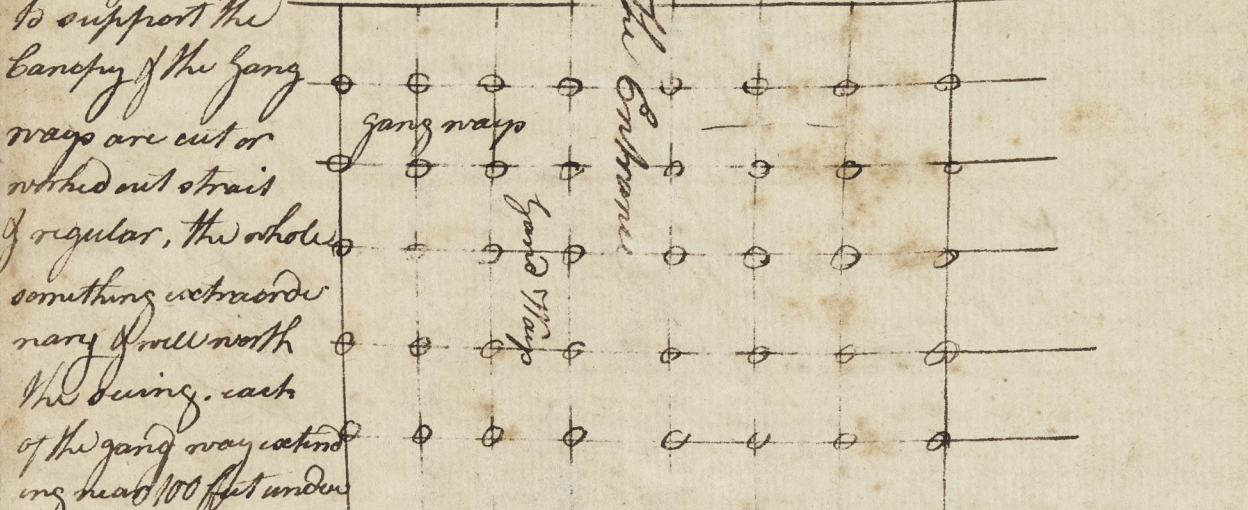 to support the
Canopy & the Gang
ways are cut or
worked out strait
& regular, the whole
something extraordi
nary & well worth
the seeing. each
of the gang way extend
ing near 100 feet under
gang ways
Gang Ways
the Entrance